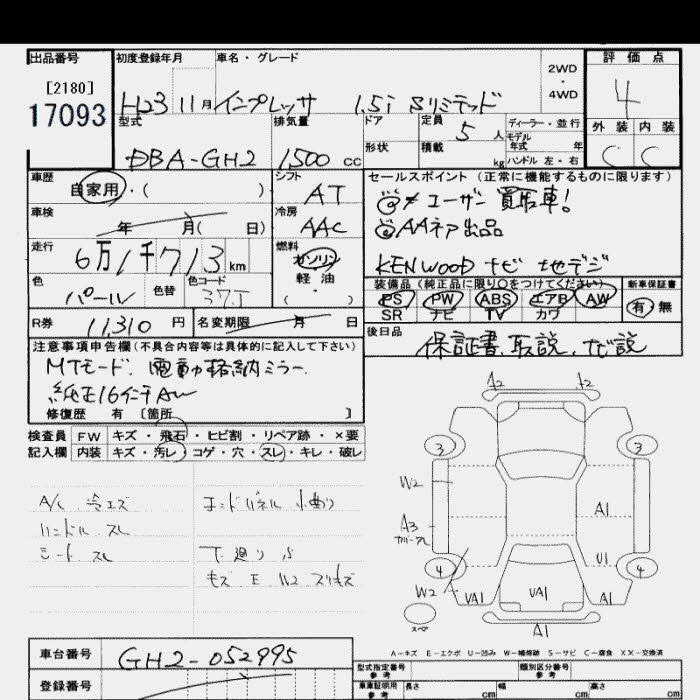 出品番号 初度登録年月 車名・グレード 評価点
[2180] 2WD・4WD 4
17093 H23 11月 インプレッサ 1.5i Sリミテッド
型式 排気量 ドア 定員 5人 ディーラー・並行 外装 内装
モデル年式 年
DBA-GH2 1500cc 形状 積載 kg ハンドル 左・右 C C
車歴 シフト セールスポイント (正常に機能するものに限ります)
自家用・( ) AT ユーザー買取車!
車検 冷房 AAネア出品
年 月( 日) AAC
走行 燃料 KENWOOD ナビ 地デジ
6万1千713km ガソリン
軽油
( ・ )
色 色替 色コード 装備品 (純正品に限り○をつけてください) 新車保証書
パール 37J PS PW ABS エアB AW 有・無
SR ナビ TV カワ
R券 11,310円 名変期限 月 日 後日品
保証書、取説、ナビ説
注意事項申告欄(不具合内容等は具体的に記入して下さい)
MTモード、電動格納ミラー
純正16インチAW
修復歴 有 [箇所 ]
検査員 FW キズ・飛石・ヒビ割・リペア跡・×要
記入欄 内装 キズ・汚レ・コゲ・穴・スレ・キレ・破レ
A/C 冷エズ
ハンドル スレ
シート スレ
下廻り S
A2 A2
3 3
W2 A1
A3
U1
4 4
W2 UA1 UA1 A1
スペア A1
A-キズ E-エクボ U-凹み W-補修跡 S-サビ C-腐食 XX-交換済
車台番号 GH2-052995
登録番号
型式指定番号 参考 類別区分番号 参考
車庫証明用 参考 長さ cm 幅 cm 高さ cm